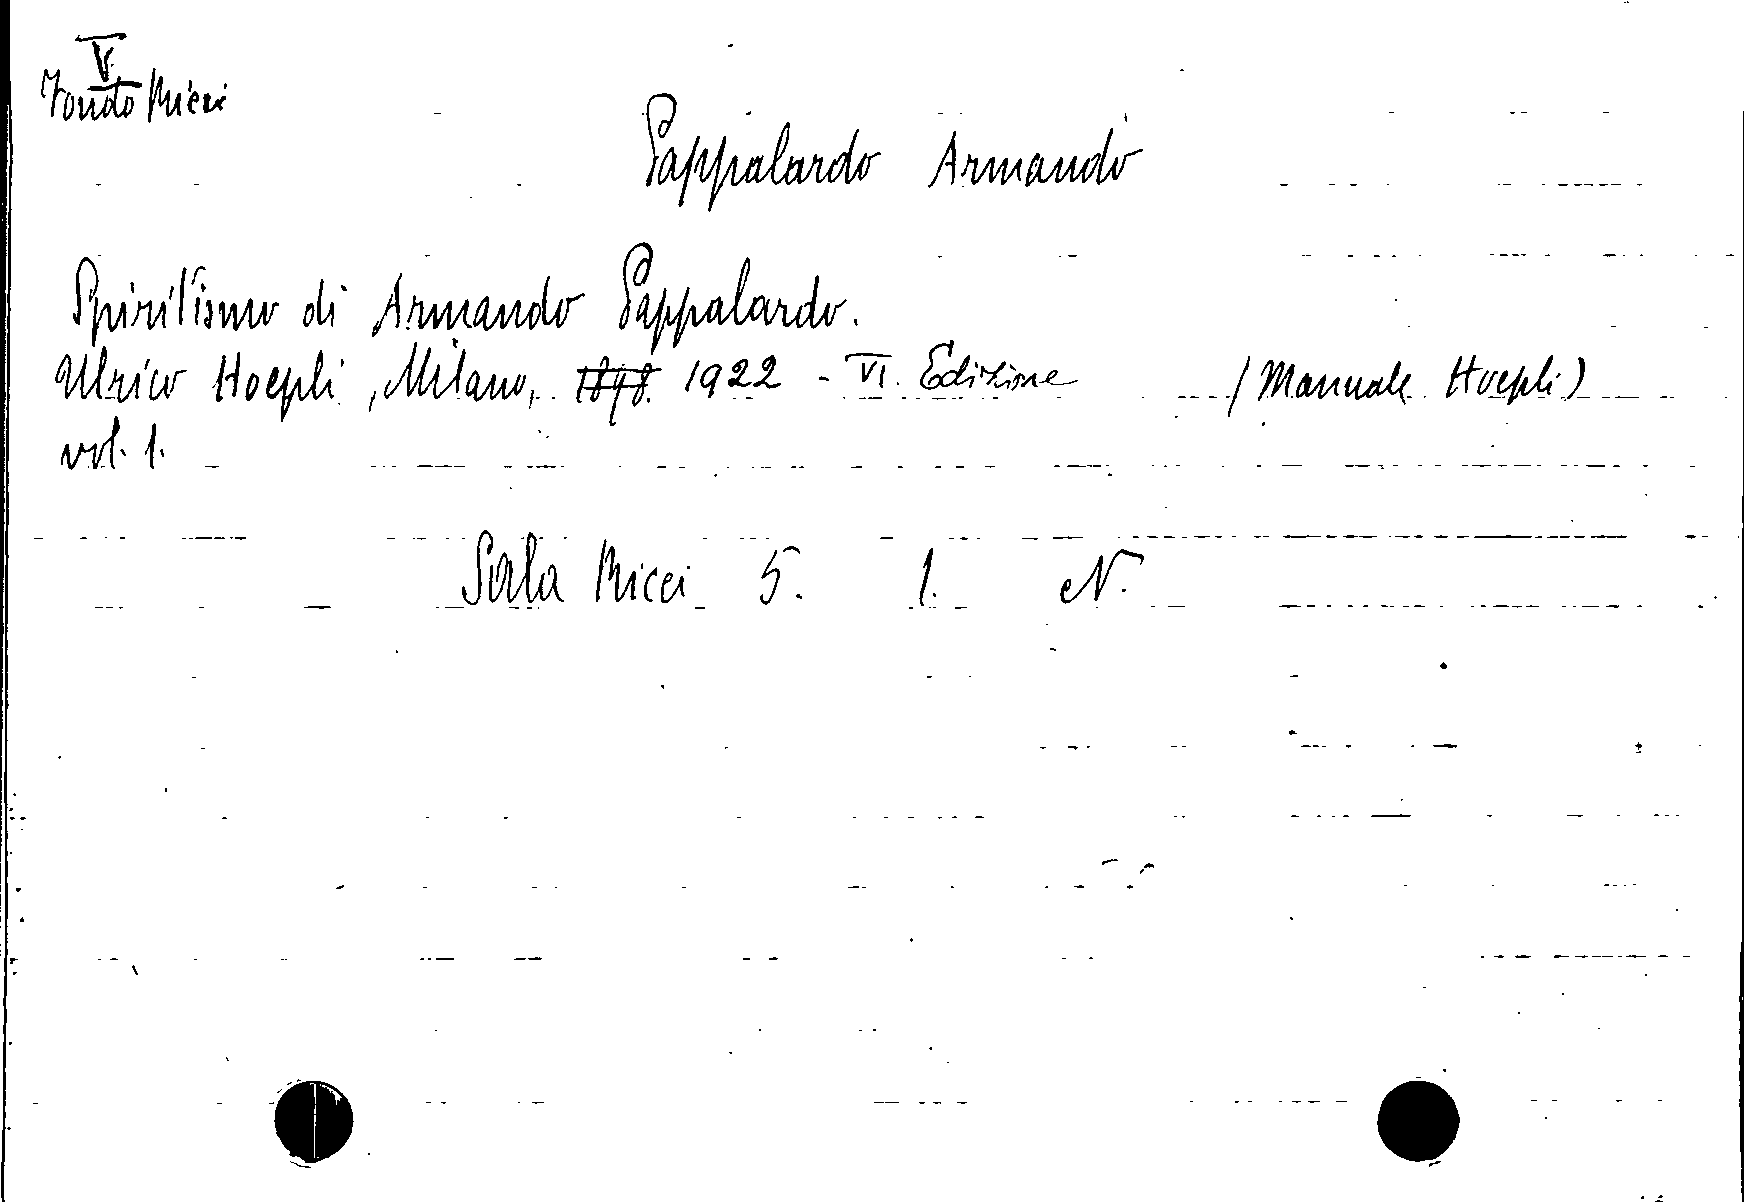 V
Fondo Ricci
Pappalardo Armando
Spiritismo di Armando Pappalardo.
Ulrico Hoepli, Milano, 1898. 1922 - VI. Edizione (Manuale Hoepli)
vol. 1.
Sala Ricci 5. 1. N.